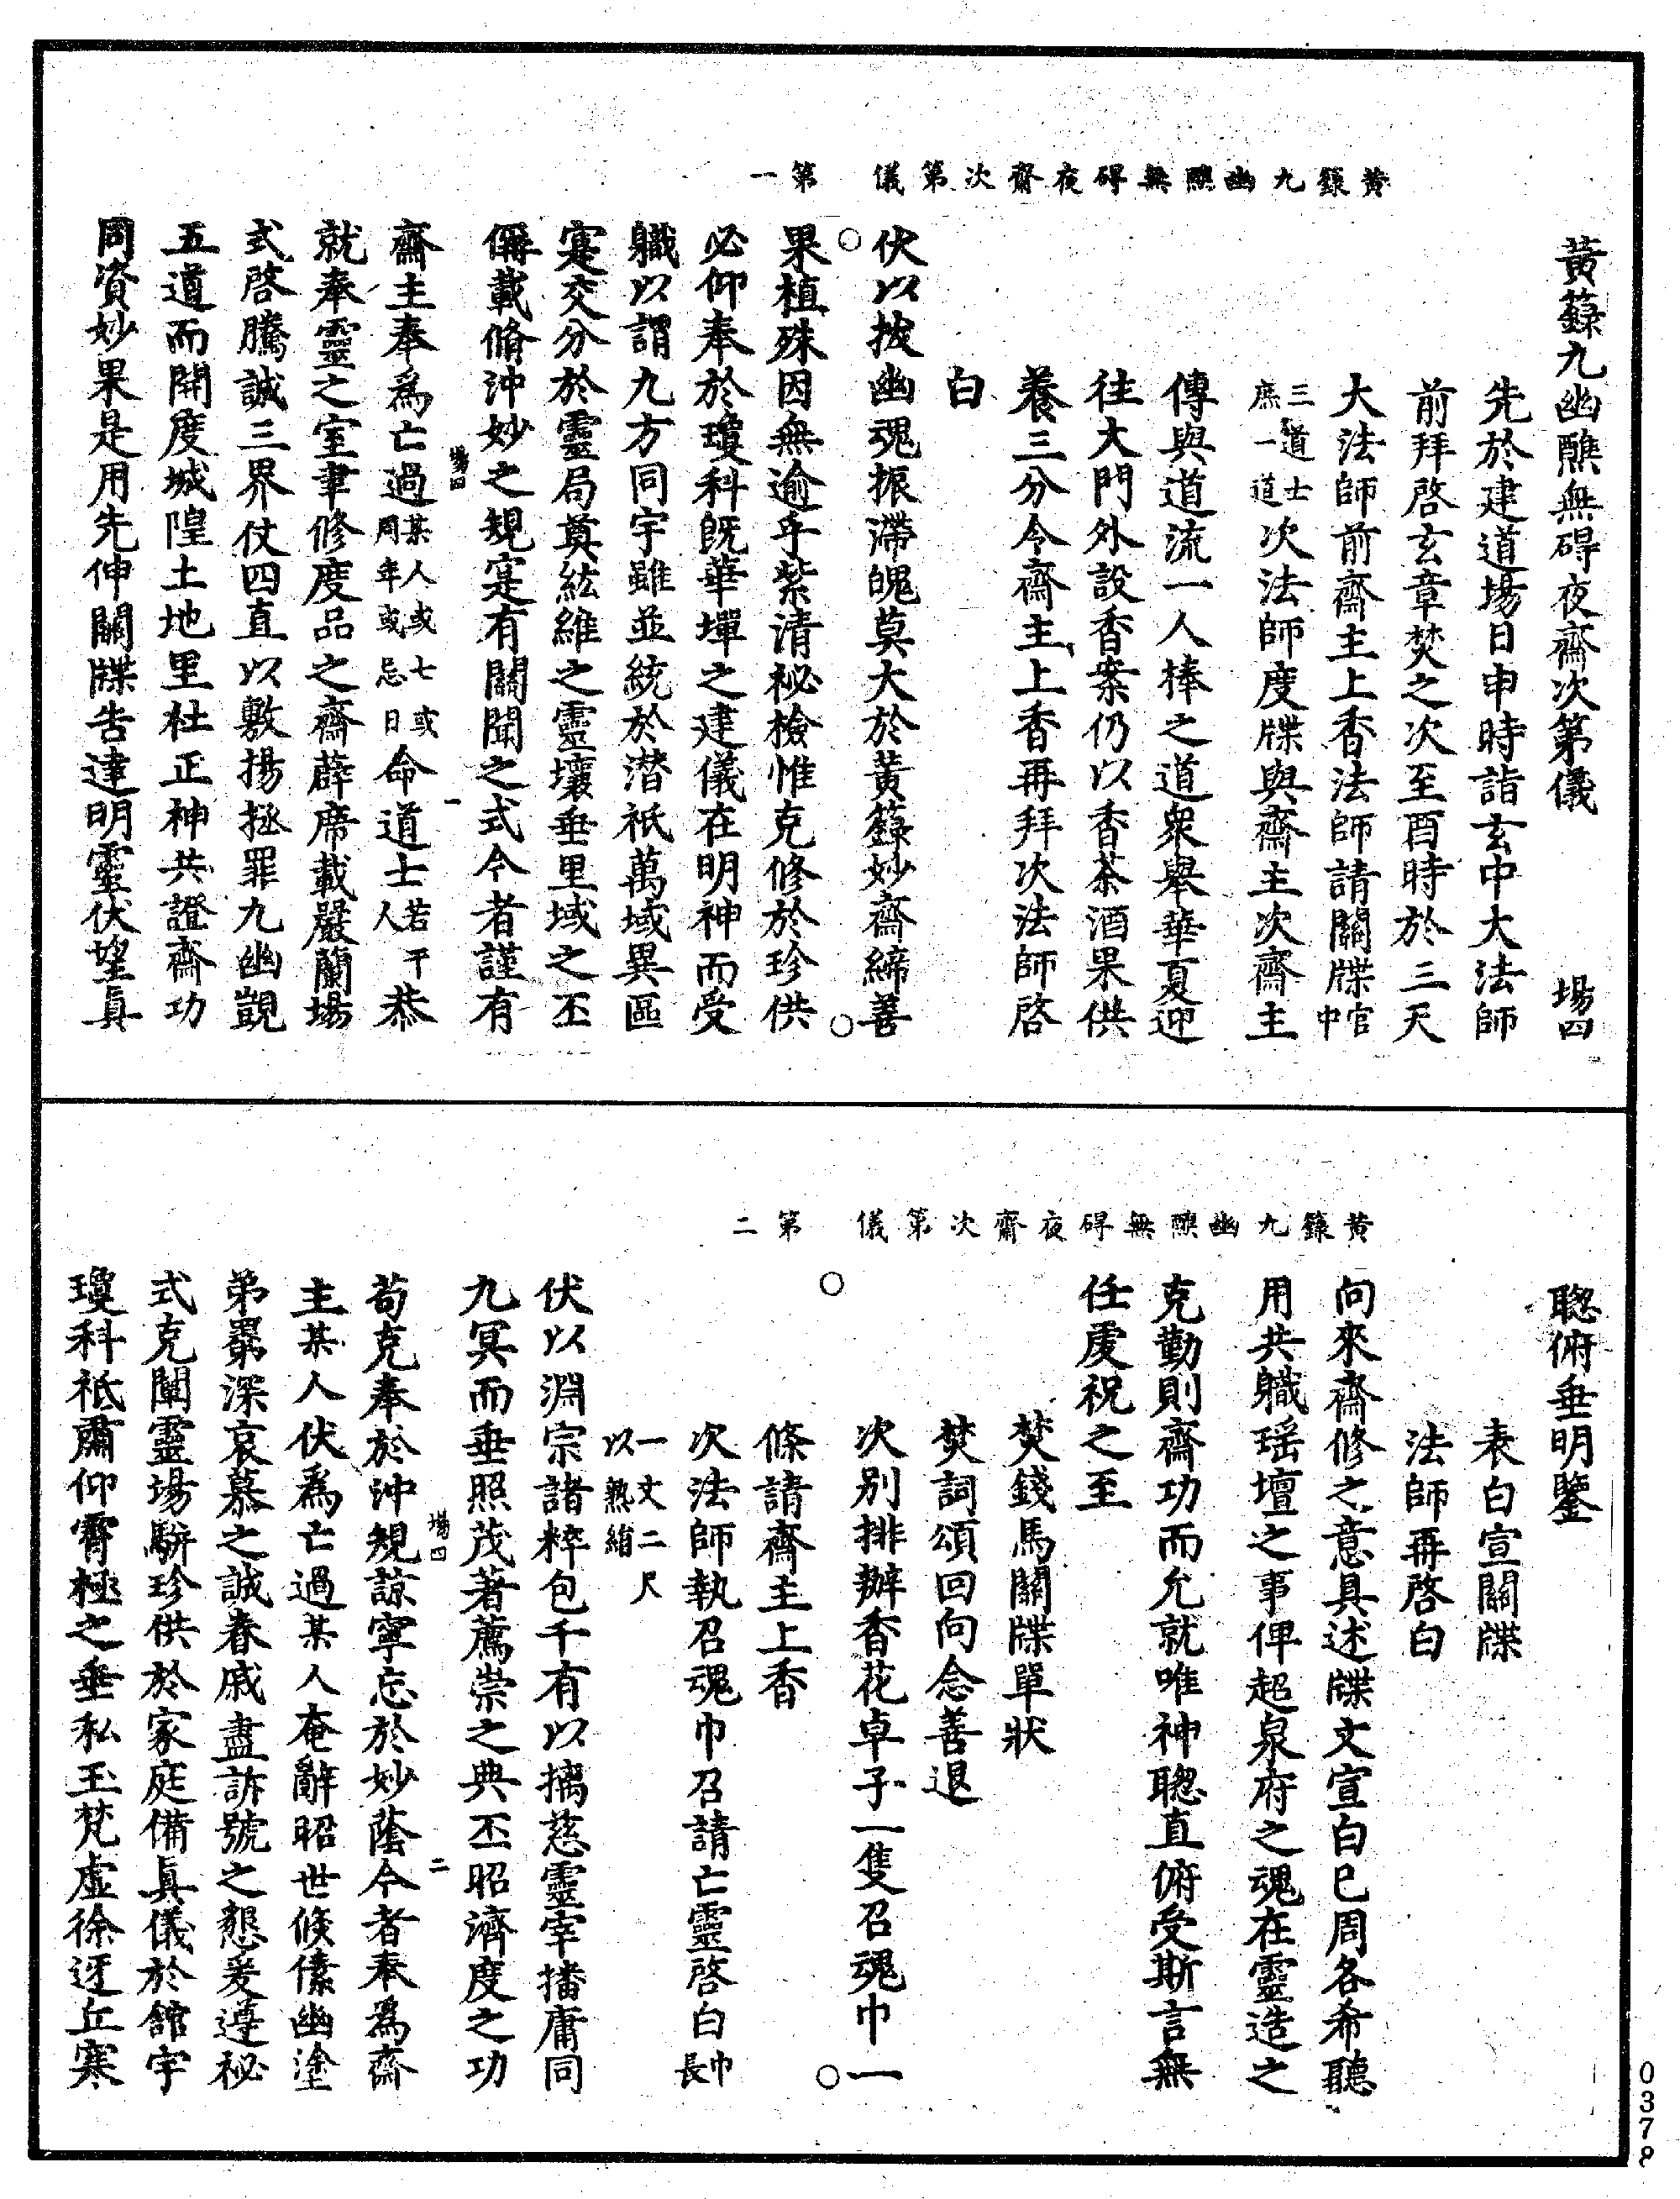 黃籙九幽醮無碍夜齋次第儀　第一
黃籙九幽醮無碍夜齋次第儀　場四
先於建道場日申時詣玄中大法師
前拜啓玄章焚之次至酉時於三天
大法師前齋主上香法師請關牒中官
三道士庶一道次法師度牒與齋主次齋主
傳與道流一人棒之道衆舉華夏迎
往大門外設香案仍以香茶酒果供
養三分令齋主上香再拜次法師啓
白
伏以披幽魂振滯魄莫大於黃籙妙齋締善
果植殊因無逾乎紫清祕檢惟克修於珍供
必仰奉於瓊科旣華墠之建儀在明神而受
職以謂九方同宇雖並統於潜祇萬域異區
寔交分於靈局奠紘維之靈壤垂里域之丕
偁載脩沖妙之規寔有關聞之式今者謹有
場四　一
齋主奉爲亡過某人或七或周年或忌日命道士若干人恭
就奉靈之室聿修度品之齋薜席載嚴蘭場
式啓騰誠三界仗四直以敷揚拯罪九幽覬
五道而開度城隍土地里社正神共證齋功
同資妙果是用先伸關牒告達明靈伏望眞
黃籙九幽醮無碍夜齋次第儀　第二
聰俯垂明鑒
表白宣關牒
法師再啓白
向來齋修之意具述牒文宣白已周各希聽
用共職瑶壇之事俾超泉府之魂在靈造之
克勤則齋功而允就唯神聰直俯受斯言無
任虔祝之至
焚錢馬關牒單狀
焚詞頌回向念善退
次別排辦香花卓子一隻召魂巾一
條請齋主上香
次法師執召魂巾召請亡靈啓白巾長
一丈二尺以熟絹
伏以淵宗諸粹包千有以摛慈靈宰播庸同
九冥而垂照茂著薦崇之典丕昭濟度之功
場四　二
苟克奉於沖規諒寧忘於妙蔭今者奉爲齋
主某人伏爲亡過某人奄辭昭世倐傃幽塗
弟羇深哀慕之誠眷戚盡訴號之懇爰遵祕
式克闡靈場駢珍供於家庭備眞儀於舘宇
瓊科祗肅仰霄極之垂私玉梵虛徐迓丘寒
0378